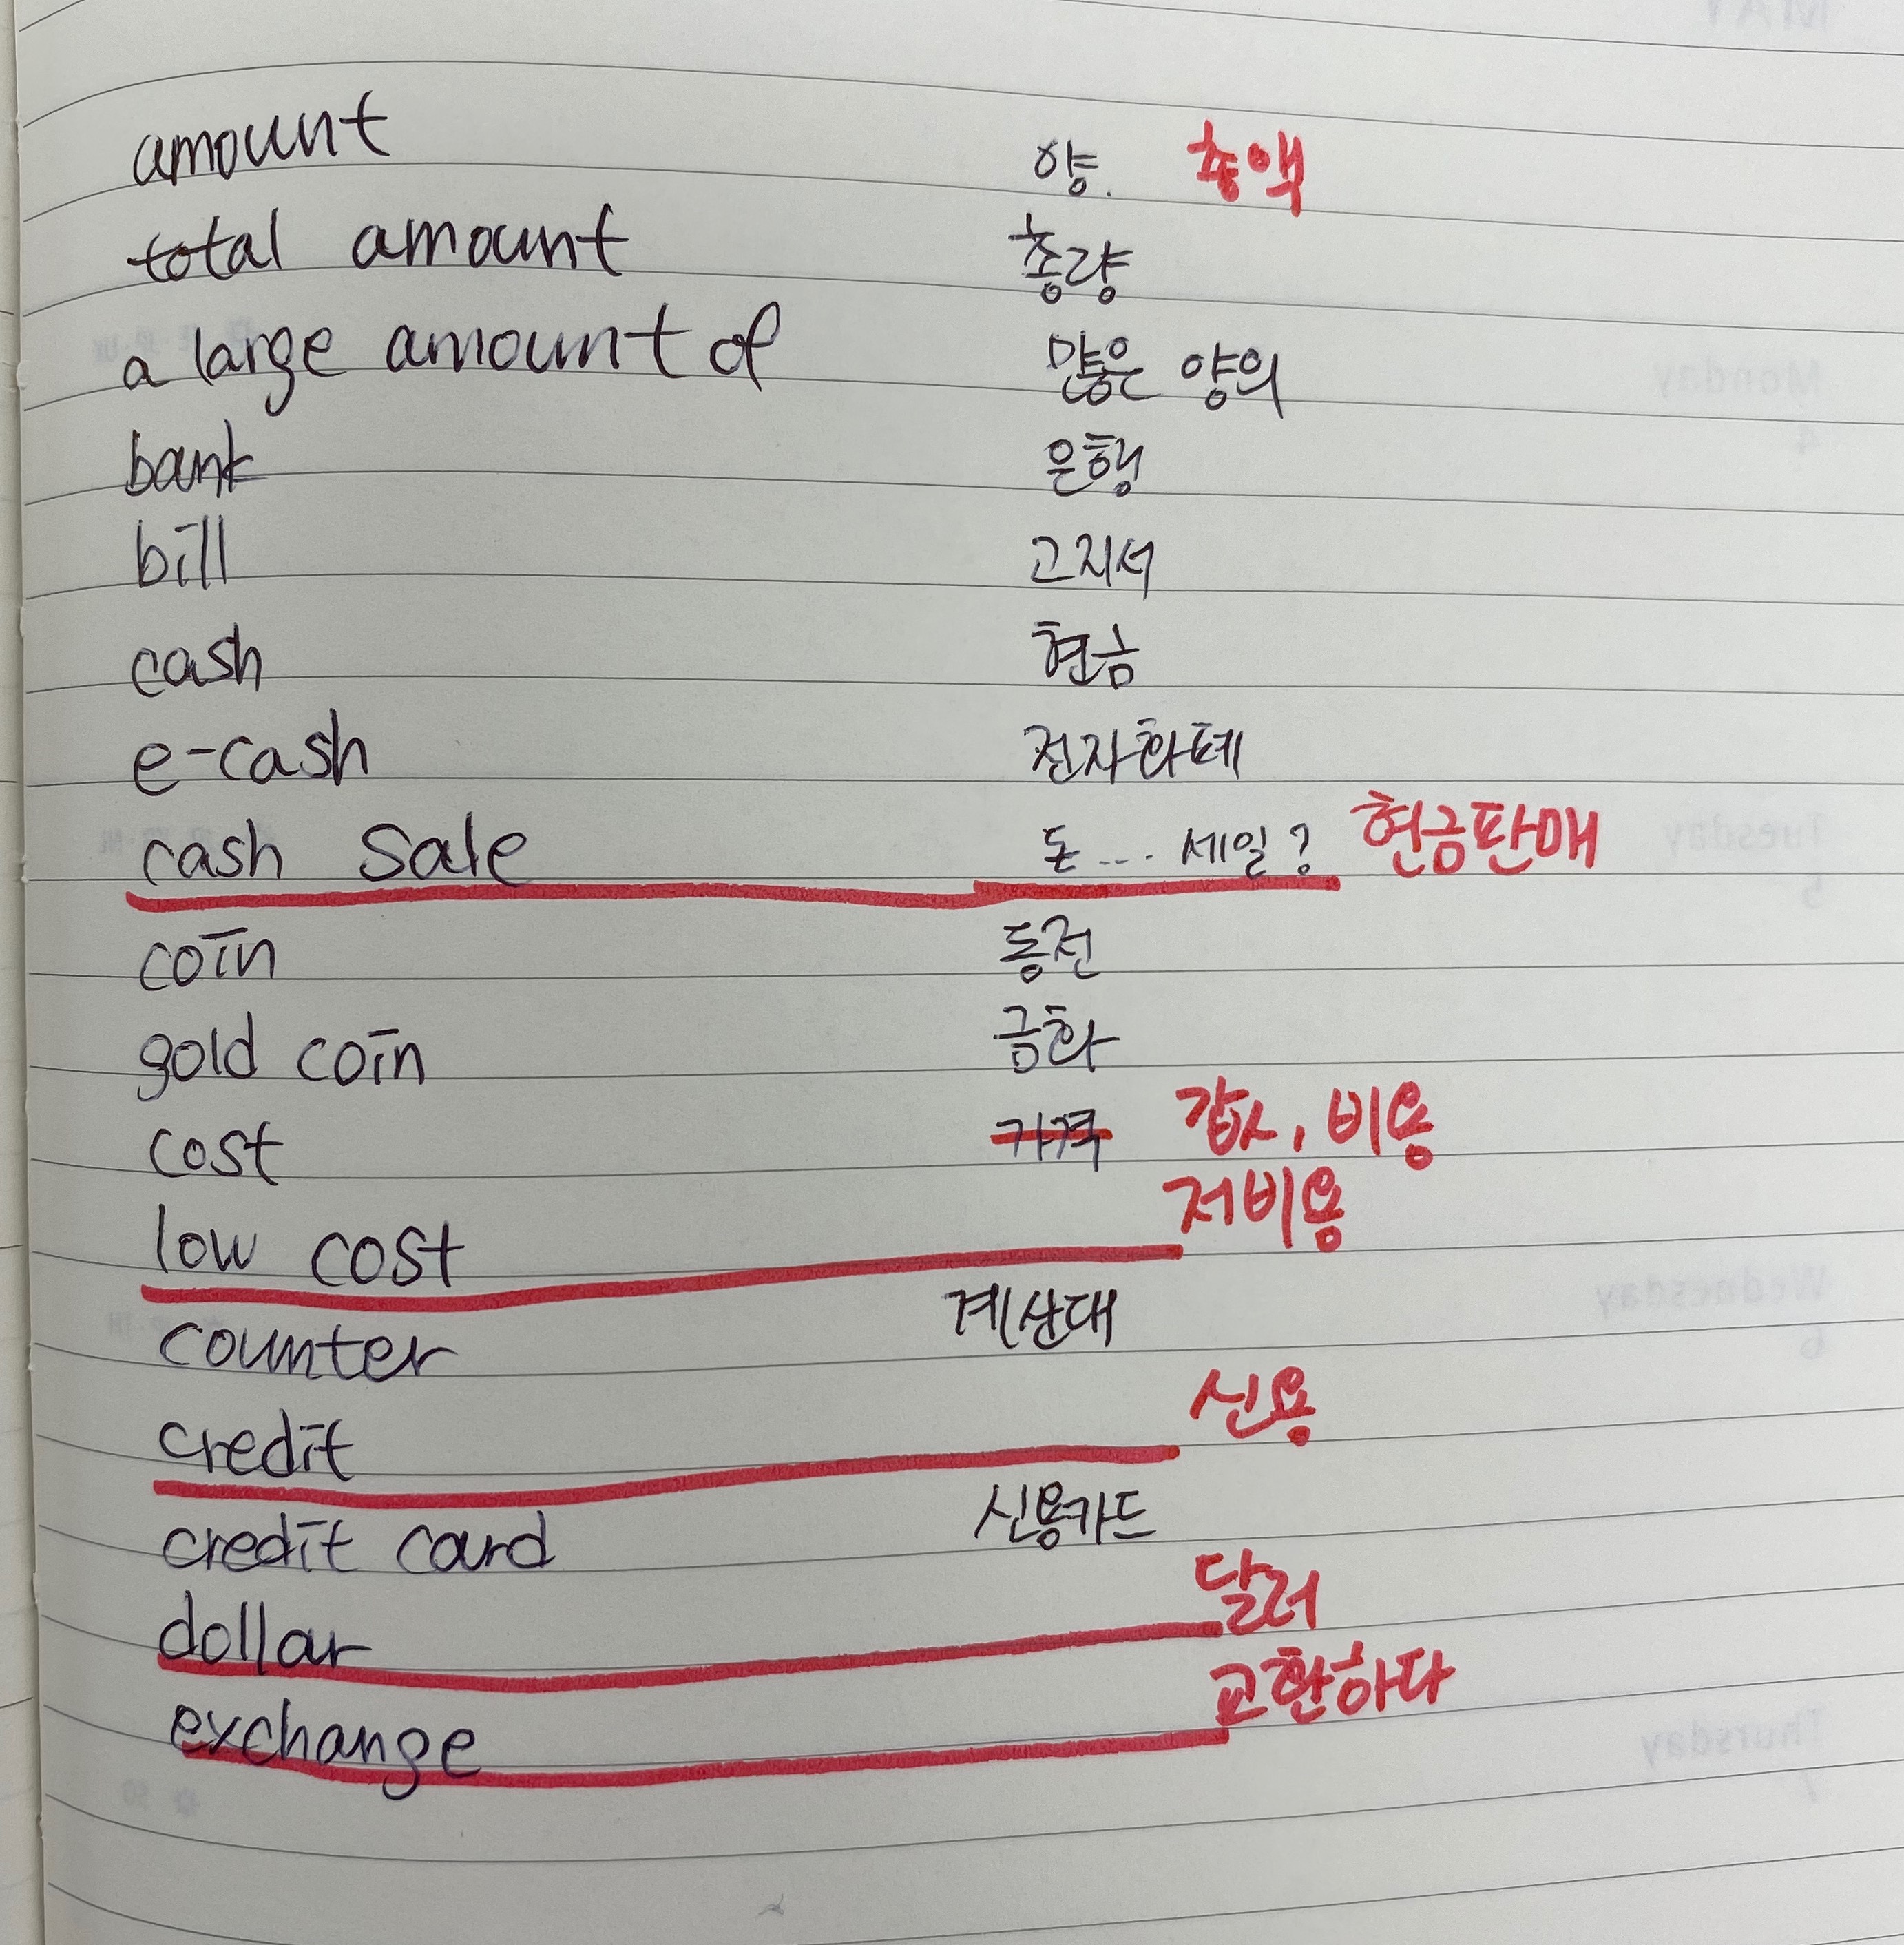 amount 양. 총액
total amount 총량
a large amount of 많은 양의
bank 은행
bill 고지서
cash 현금
e-cash 전자화폐
cash sale 돈.... 세일? 현금판매
coin 동전
gold coin 금화
cost 가격 값, 비용
low cost 저비용
counter 계산대
credit 신용
credit card 신용카드
dollar 달러
exchange 교환하다
Monday
4
Tuesday
5
Wednesday
6
Thursday
7